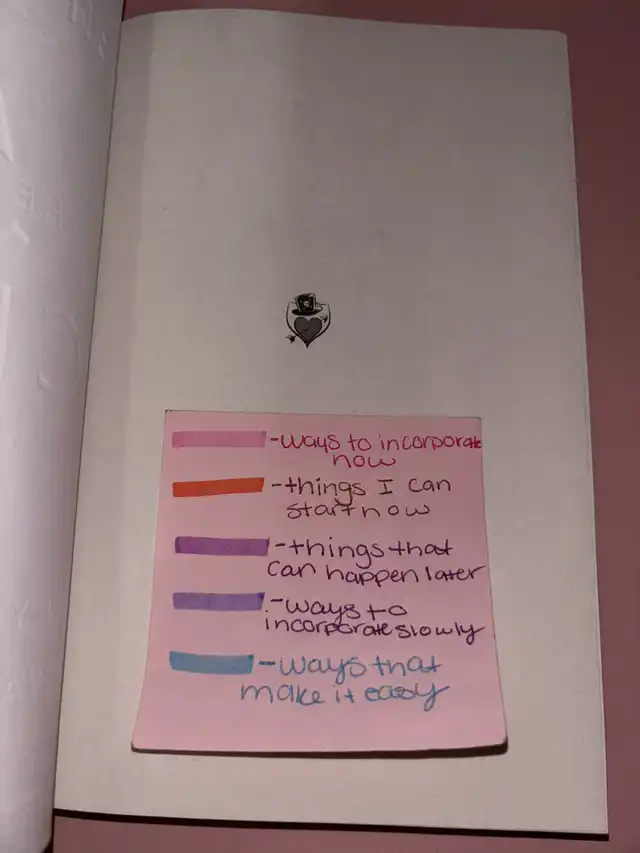 -ways to incorporate
now
-things I can
start now
-things that
can happen later
-ways to
incorporate slowly
-ways that
make it easy